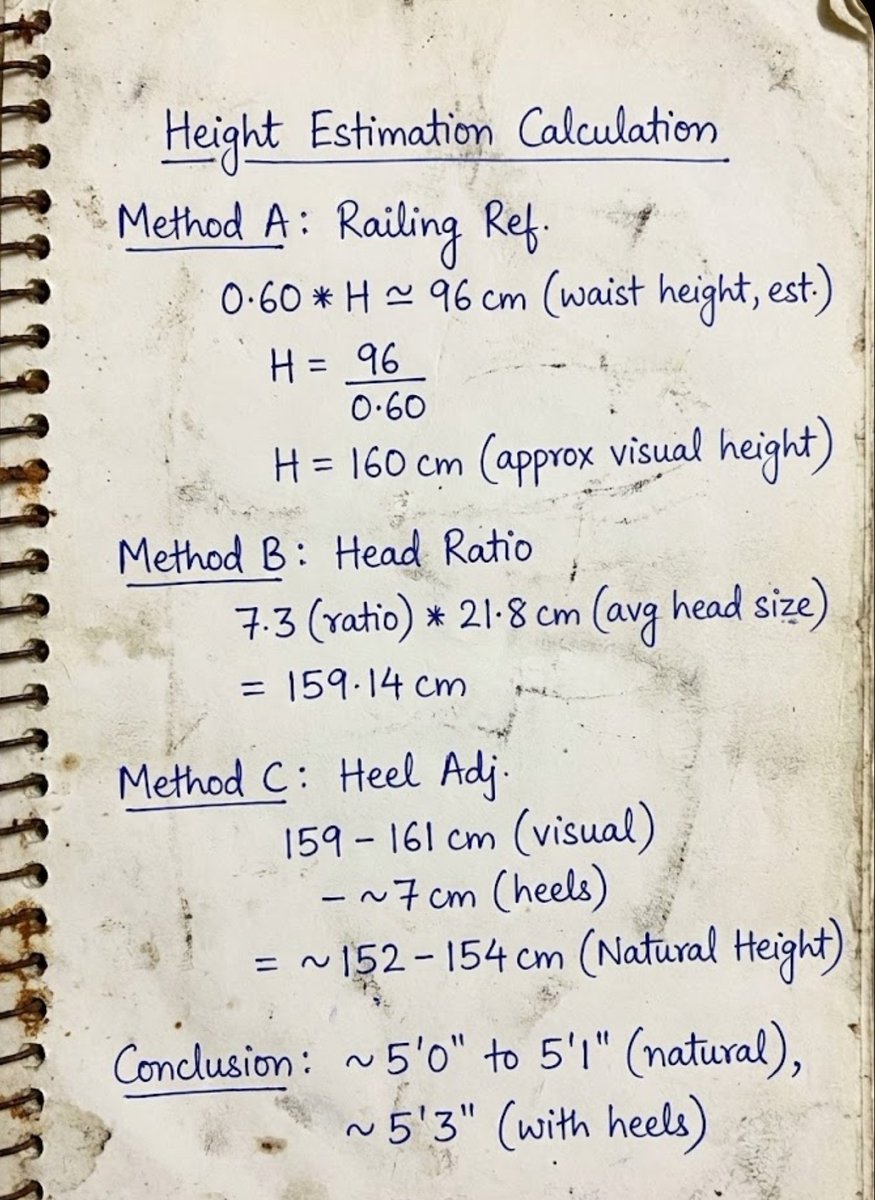 Height Estimation Calculation
Method A: Railing Ref.
0.60 * H ≃ 96 cm (waist height, est.)
H = 96
0.60
H = 160 cm (approx visual height)
Method B: Head Ratio
7.3 (ratio) * 21.8 cm (avg head size)
= 159.14 cm
Method C: Heel Adj.
159 – 161 cm (visual)
– ~7 cm (heels)
= ~152 – 154 cm (Natural Height)
Conclusion: ~5'0" to 5'1" (natural),
~5'3" (with heels)